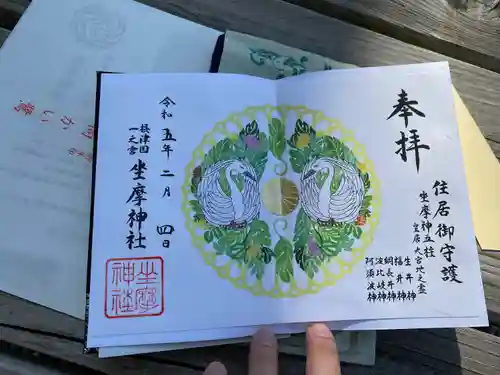 奉拝
住居御守護
坐摩神五柱
皇居大宮地之霊
生井神
福井神
綱長井神
波比岐神
阿須波神
令和五年二月四日
摂津国
一之宮
坐摩神社
坐摩
神社